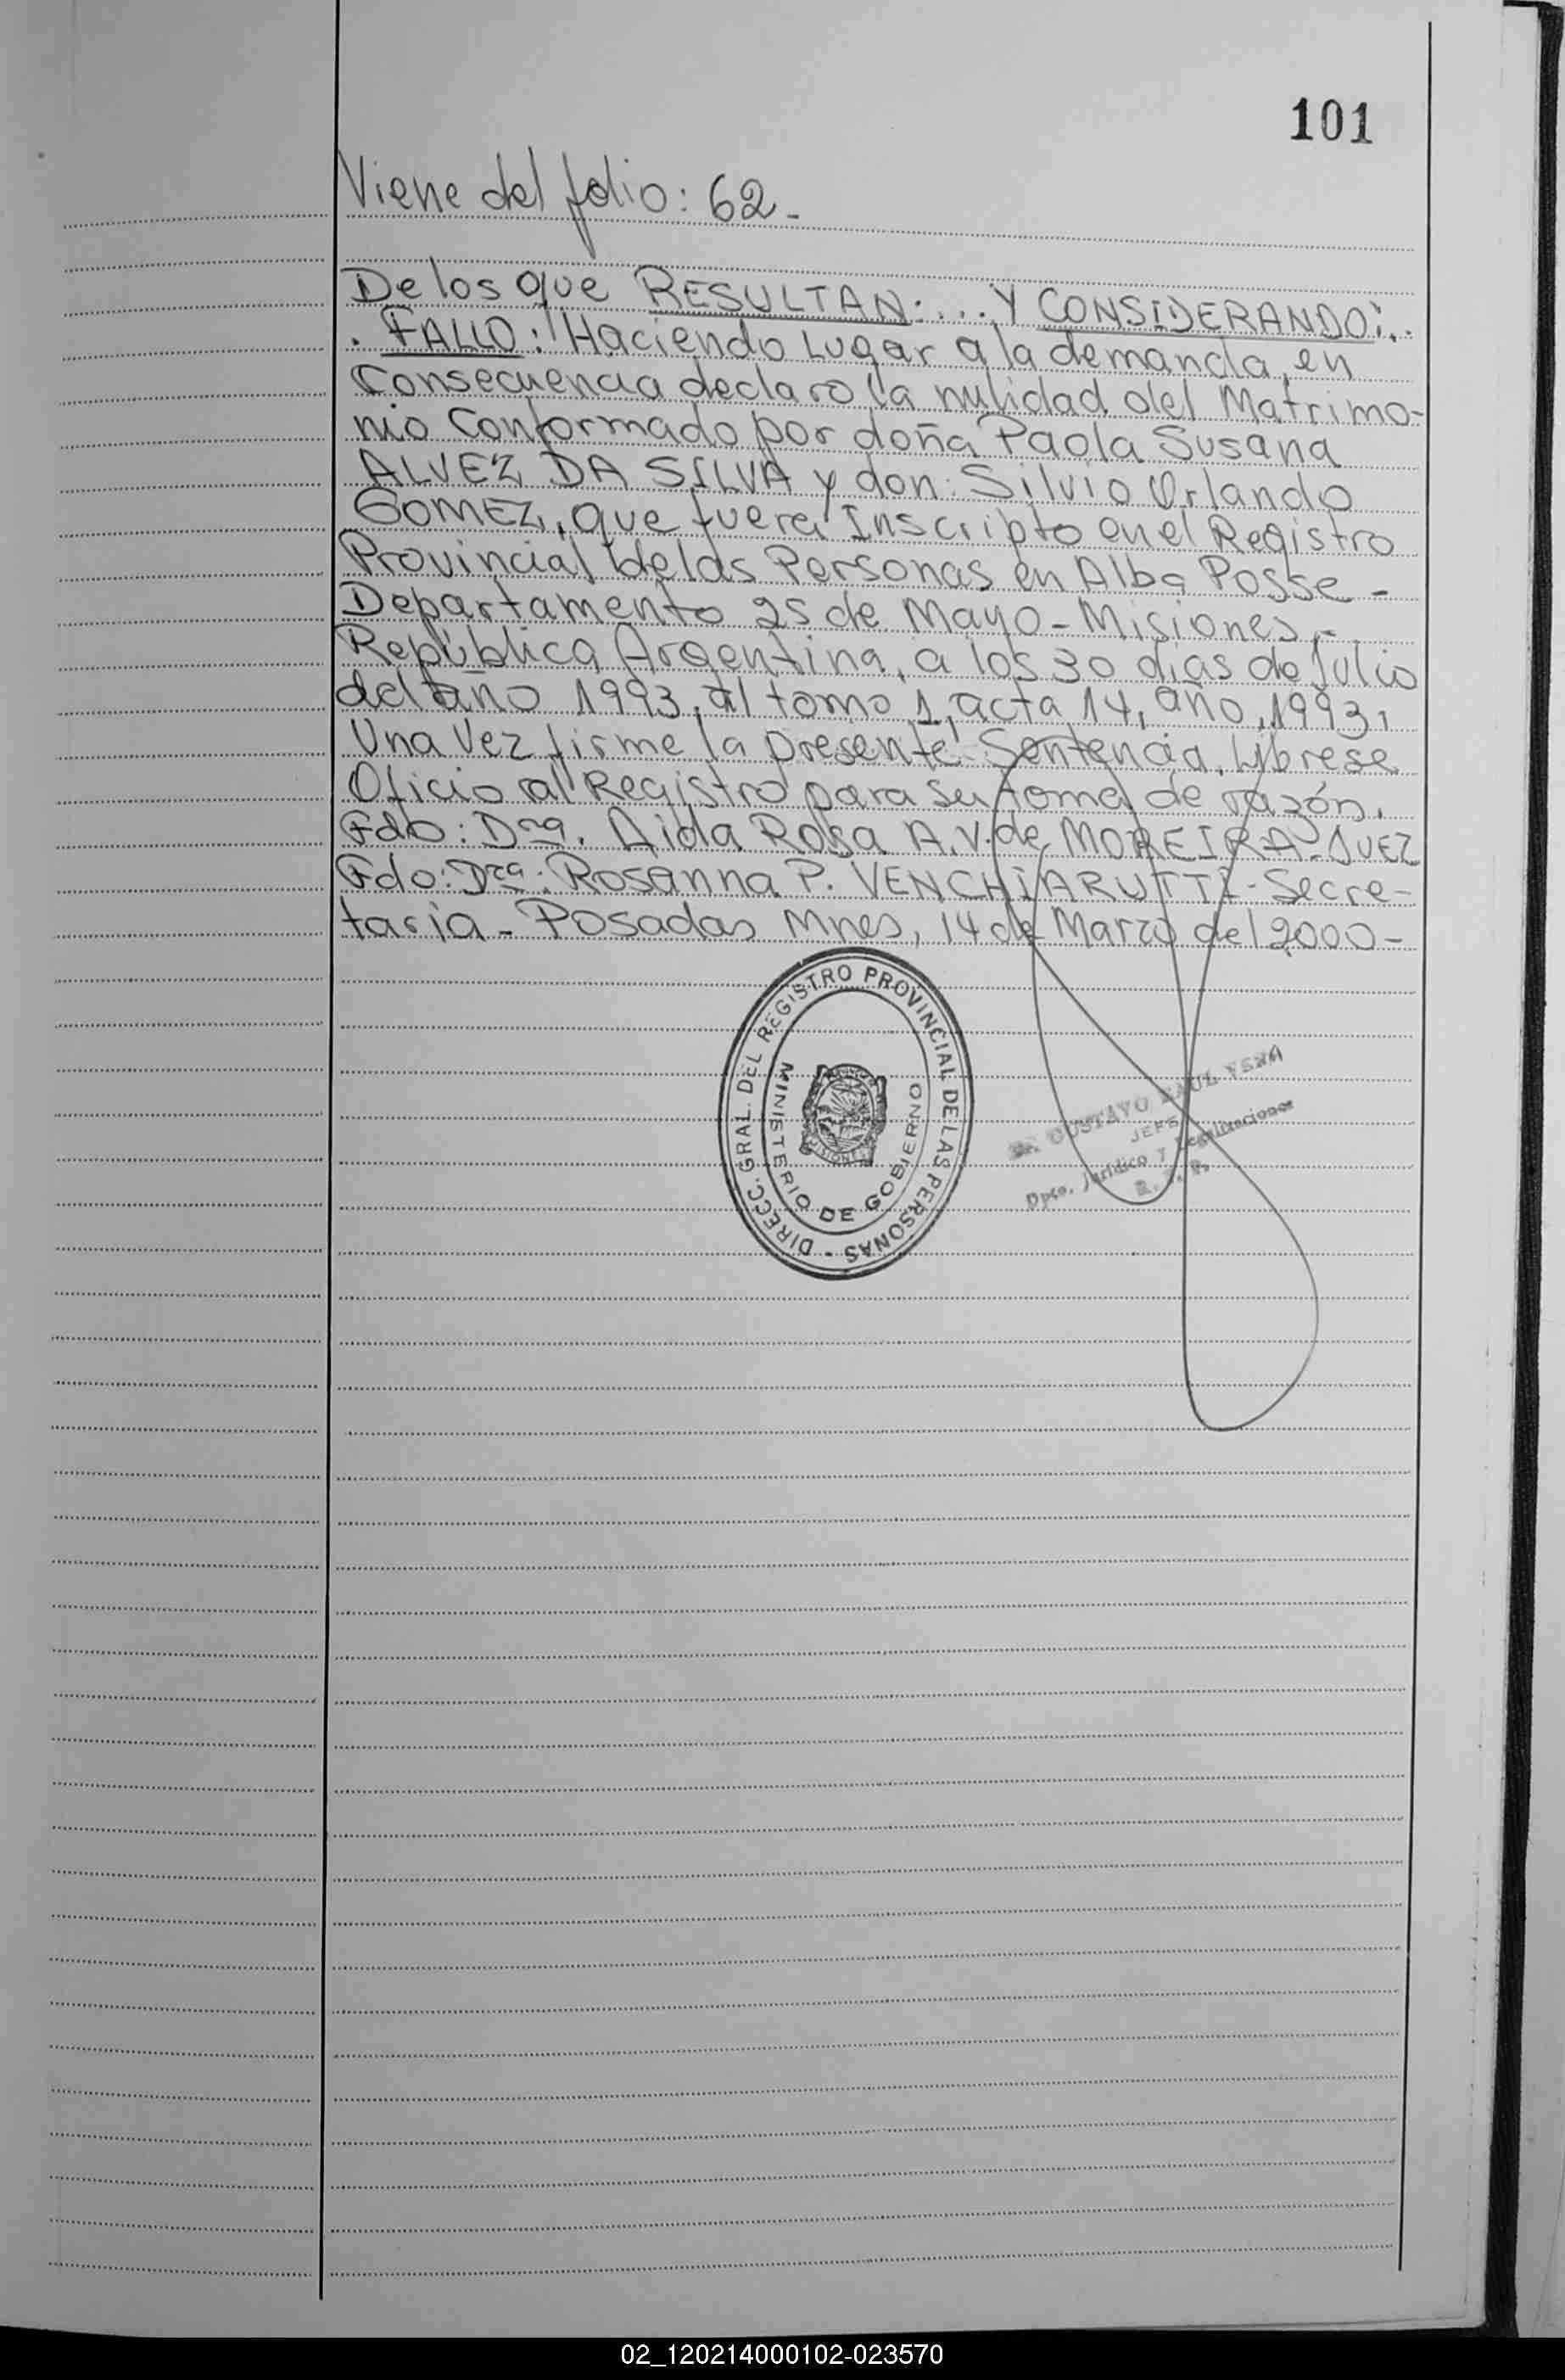 101
Viene del folio: 62-
De los que RESULTAN:... Y CONSIDERANDO:..
. FALLO: Haciendo Lugar a la demanda, en
Consecuencia declaro la nulidad del Matrimo-
nio Conformado por doña Paola Susana
ALVEZ DA SILVA y don: Silvio Orlando
GOMEZ, que fuera Inscripto en el Registro
Provincial de las Personas en Alba Posse -
Departamento 25 de Mayo - Misiones,-
República Argentina, a los 30 días de Julio
del año 1993, al tomo 1, acta 14, año, 1993,
Una vez firme la presente Sentencia, Líbrese
Oficio al Registro para su toma de razón.
Fdo: Dra. Aida Rosa A.V. de MOREIRA-JUEZ
Fdo: Dra: Rosanna P. VENCHIARUTTI-Secre-
taria - Posadas Mnes, 14 de Marzo del 2000-
DIRECC. GRAL. DEL REGISTRO PROVINCIAL DE LAS PERSONAS -
MINISTERIO DE GOBIERNO
MISIONES
GUSTAVO RAUL
JEFE
Dpto. Jurídico y Legalizaciones
02_120214000102-023570